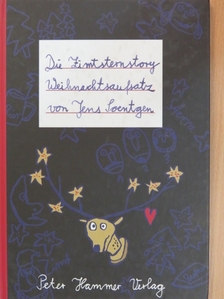 Die Zimtsternstory
Weihnachtsaufsatz
von Jens Soentgen
Peter Hammer Verlag